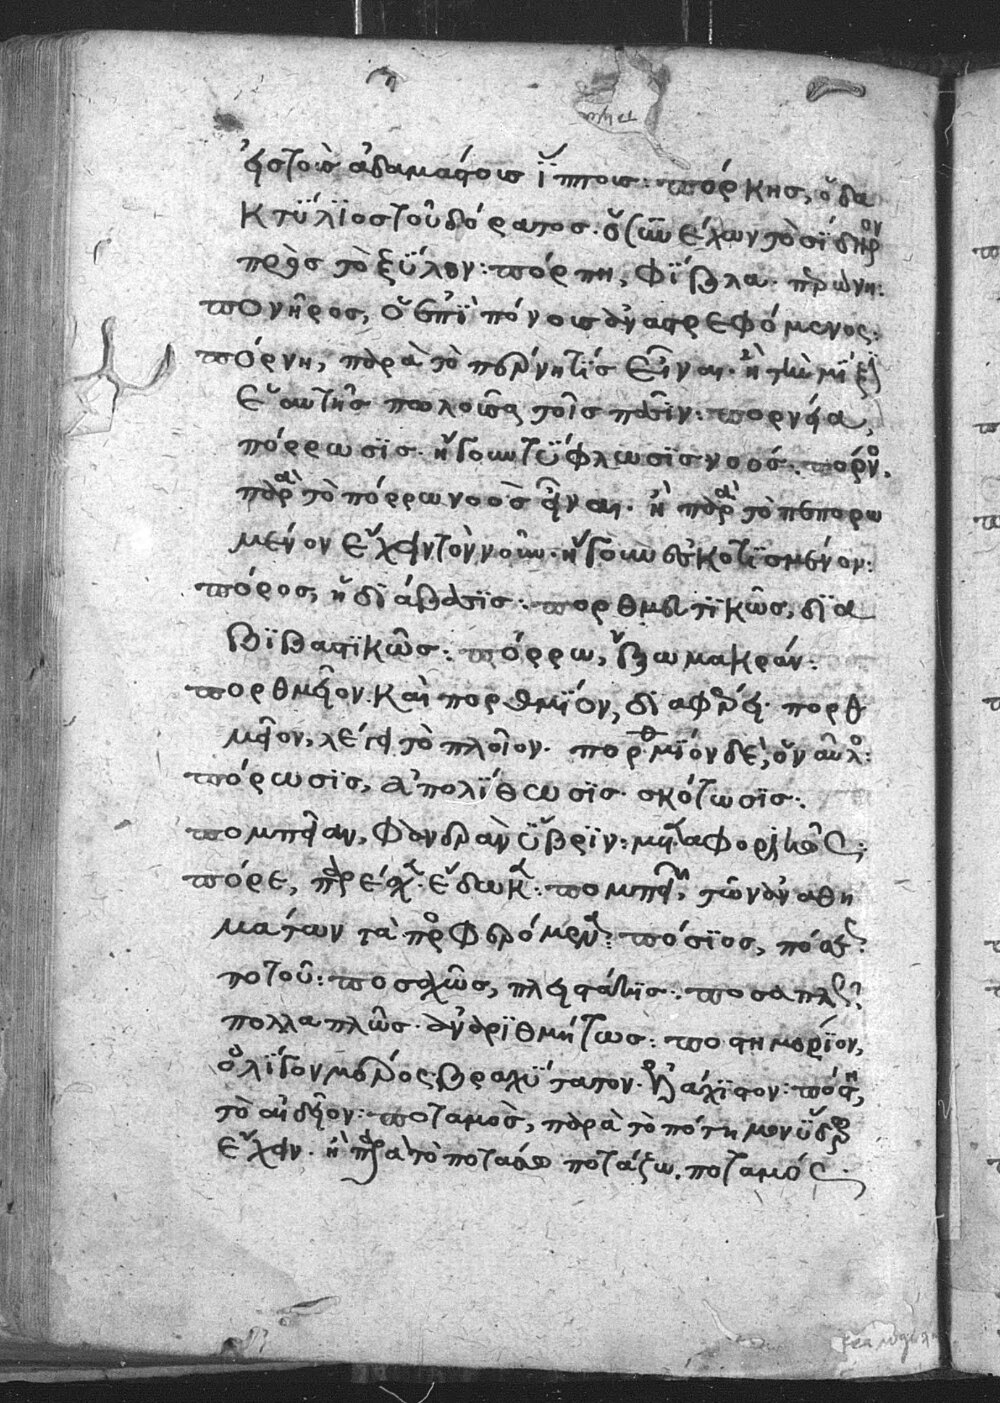 τοῖς ἀδαμάστοις ἵπποις: πόρκης, ὁ δα
κτύλιος τοῦ δόρατος. ὁ συνέχων τὸ σίδηρον
πρὸς τὸ ξύλον: πόρπη, φίβλα. περόνη:
πονηρος, ὁ ἐπὶ πόνοις ἀναστρεφόμενος:
πόρνη, παρὰ τὸ περνητὶς εἶναι. ἢ τὴν μίξιν
ἑαυτῆς πωλοῦσα τοῖς πᾶσιν: πορνεία,
πόρρωσις. ἤγουν τύφλωσις νοός: πόρνος,
παρὰ τὸ πόρρω νοὸς εἶναι. ἢ παρὰ τὸ πεπορω
μένον ἔχειν τὸν νοῦν. ἤγουν ἐσκοτισμένον:
πόρος, ἡ διάβασις: πορθμευτικῶς, δια
βιβαστικῶς: πόρρω, ἔξω μακράν:
πορθμεῖον καὶ πορθμίον, διαφέρει. πορθ
μεῖον, λέγεται τὸ πλοῖον. πορθμίον δὲ, ὁ ναῦλος:
πόρωσις, ἀπολίθωσις. σκότωσις:
πομπείαν, φανερὰν ὕβριν: μεταφορικῶς:
πόρε, παρέσχεν. ἔδωκεν: πομπεῖα, τῶν ἀναθη
μάτων τὰ προφερόμενα: πόσιος, πόσεως
ποτοῦ: ποσαχῶς, πλειστάκις: ποσαπλῶς,
πολλαπλῶς. ἀναριθμήτως: ποστημόριον,
ὀλίγον μέρος βραχύτατον. ἐλάχιστον: πόσθη,
τὸ αἰδοῖον: ποταμὸς, παρὰ τὸ πότιμον ὕδωρ
ἔχειν. ἢ παρὰ τὸ ποτάσσω ποτάξω. ποταμός: